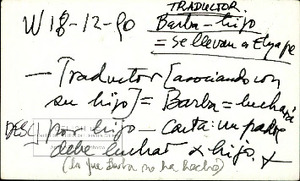 TRADUCTOR.
W 18-12-90 Barba - hijo
= se llevan a
- Traductor [asociando con
su hijo] = Barba = luchará
DESC por hijo - Carta: un padre
debe luchar x hijo
(lo que Barba no ha hecho)